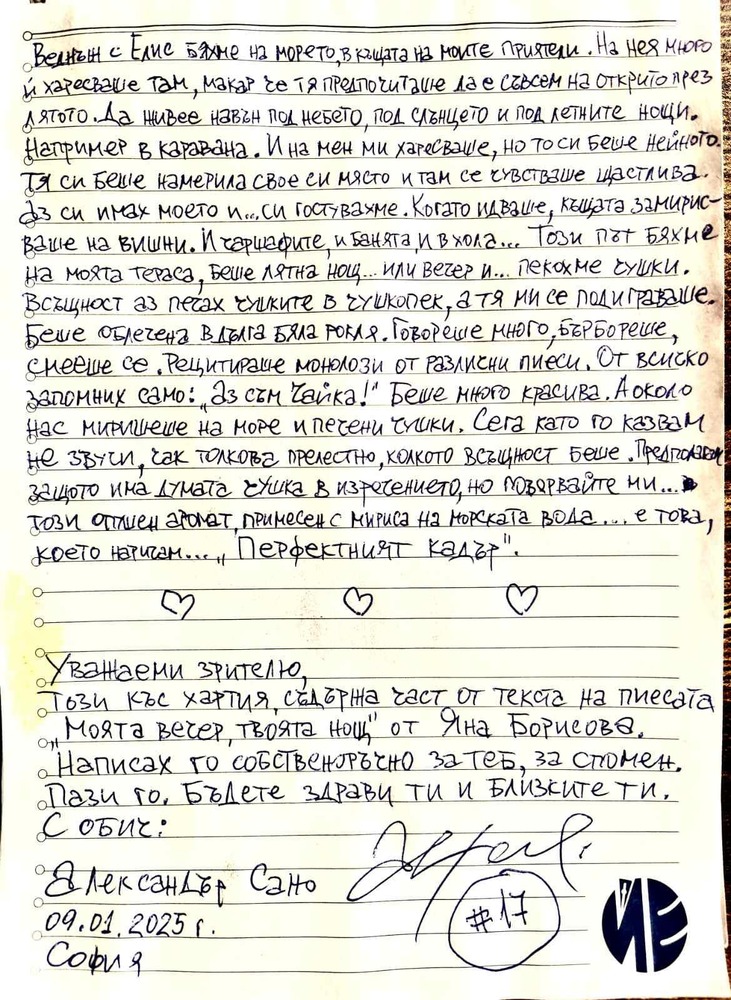 Веднъж с Елис бяхме на морето, в къщата на моите приятели. На нея много
ѝ харесваше там, макар че тя предпочиташе да е съвсем на открито през
лятото. Да живее навън под небето, под слънцето и под летните нощи.
Например в каравана. И на мен ми харесваше, но то си беше нейното.
Тя си беше намерила свое си място и там се чувстваше щастлива.
Аз си имах моето и... си гостувахме. Когато идваше, къщата замирис-
ваше на вишни. И чаршафите, и банята, и в хола... Този път бяхме
на моята тераса, беше лятна нощ... или вечер и... пекохме чушки.
Всъщност аз печах чушките в чушкопек, а тя ми се подиграваше.
Беше облечена в дълга бяла рокля. Говореше много, бърбореше,
смееше се. Рецитираше монолози от различни пиеси. От всичко
запомних само: „Аз съм Чайка!" Беше много красива. А около
нас миришеше на море и печени чушки. Сега като го казвам
не звучи, чак толкова прелестно, колкото всъщност беше. Предполагам
защото има думата чушка в изречението, но повярвайте ми...
този опушен аромат, примесен с мириса на морската вода... е това,
което наричам... „Перфектният кадър".
Уважаеми зрителю,
Този къс хартия, съдържа част от текста на пиесата
„Моята вечер, твоята нощ" от Яна Борисова.
Написах го собственоръчно за теб, за спомен.
Пази го. Бъдете здрави ти и близките ти.
С обич:
Александър Сано
#17
09.01.2025 г.
София